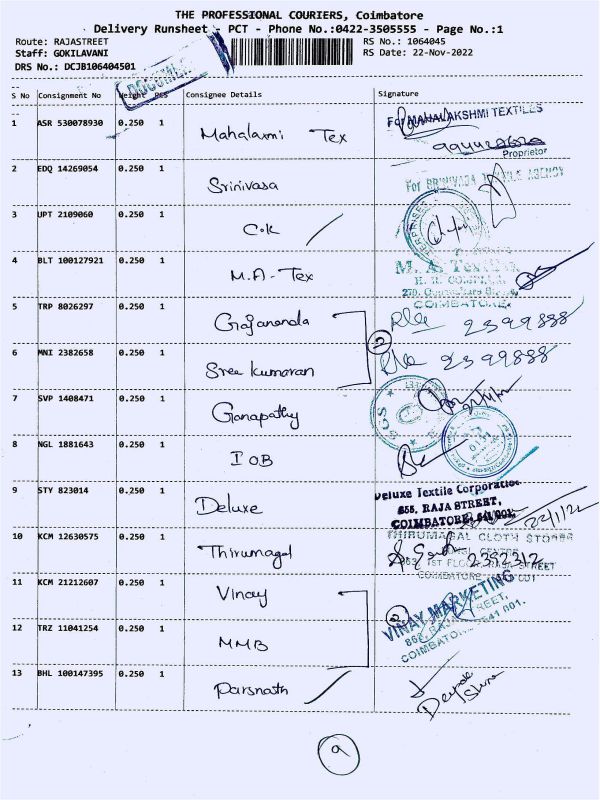 THE PROFESSIONAL COURIERS, Coimbatore
Delivery Runsheet - PCT - Phone No.:0422-3505555 - Page No.:1
Route: RAJASTREET RS No.: 1064045
Staff: GOKILAVANI RS Date: 22-Nov-2022
DRS No.: DCJB106404501
S No Consignment No Weight PCS Consignee Details Signature
1 ASR 530078930 0.250 1 Mahalaxmi Tex For MAHALAKSHMI TEXTILES
Proprietor
2 EDQ 14269054 0.250 1 Srinivasa For SRINIVASA TEXTILE AGENCY
3 UPT 2109060 0.250 1 C.K
4 BLT 100127921 0.250 1 M.A-Tex M. A. Textile
COIMBATORE
5 TRP 8026297 0.250 1 Gajananda 2399888
2
6 MNI 2382658 0.250 1 Sree kumaran 2399888
7 SVP 1408471 0.250 1 Ganapathy
8 NGL 1881643 0.250 1 IOB
9 STY 823014 0.250 1 Deluxe Deluxe Textile Corporation
855, RAJA STREET,
COIMBATORE, 641 001.
22/11/22
10 KCM 12630575 0.250 1 Thirumagal THIRUMAGAL CLOTH STORES
2392312
1ST FLOOR, RAJA STREET
COIMBATORE
11 KCM 21212607 0.250 1 Vinay VINAY MARKETING
2
862, RAJA STREET,
COIMBATORE-641 001.
12 TRZ 11041254 0.250 1 MMB
13 BHL 100147395 0.250 1 Parsnath Deepak
9